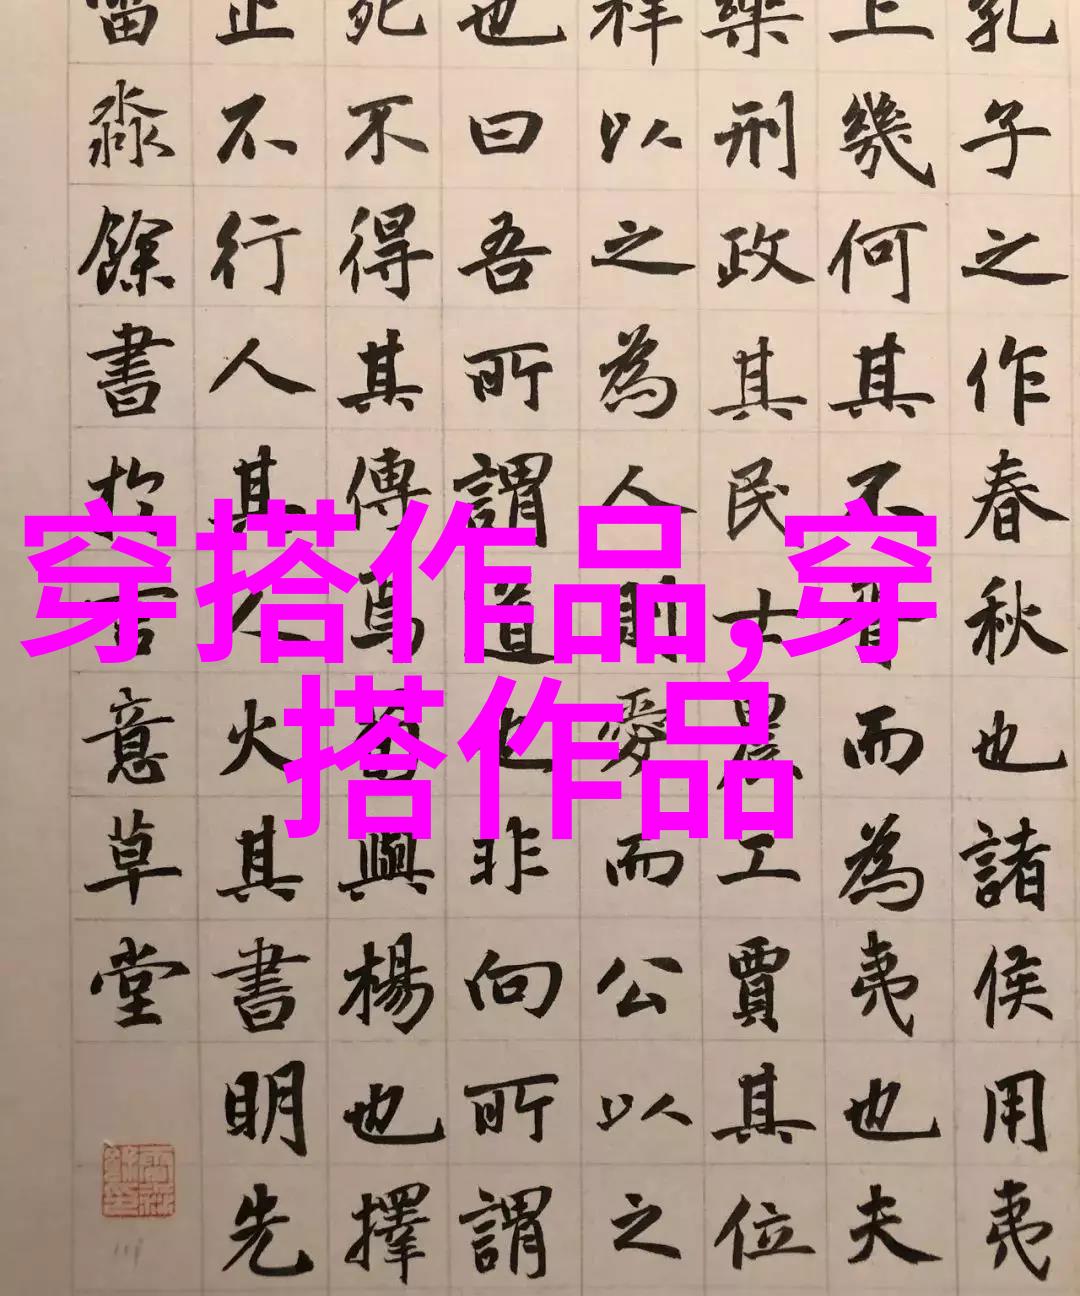 孔子之作春秋也諸侯用夷
上幾何其不胥而為夷也夫
樂刑政其民士農工賈其位
祥以之為人則愛而公以之
也曰吾所謂道也非向所謂
死不得其傳焉荀與楊也擇
止不行人其人火其書明先
淼餘書於古意草堂
穿搭作品,穿
搭作品